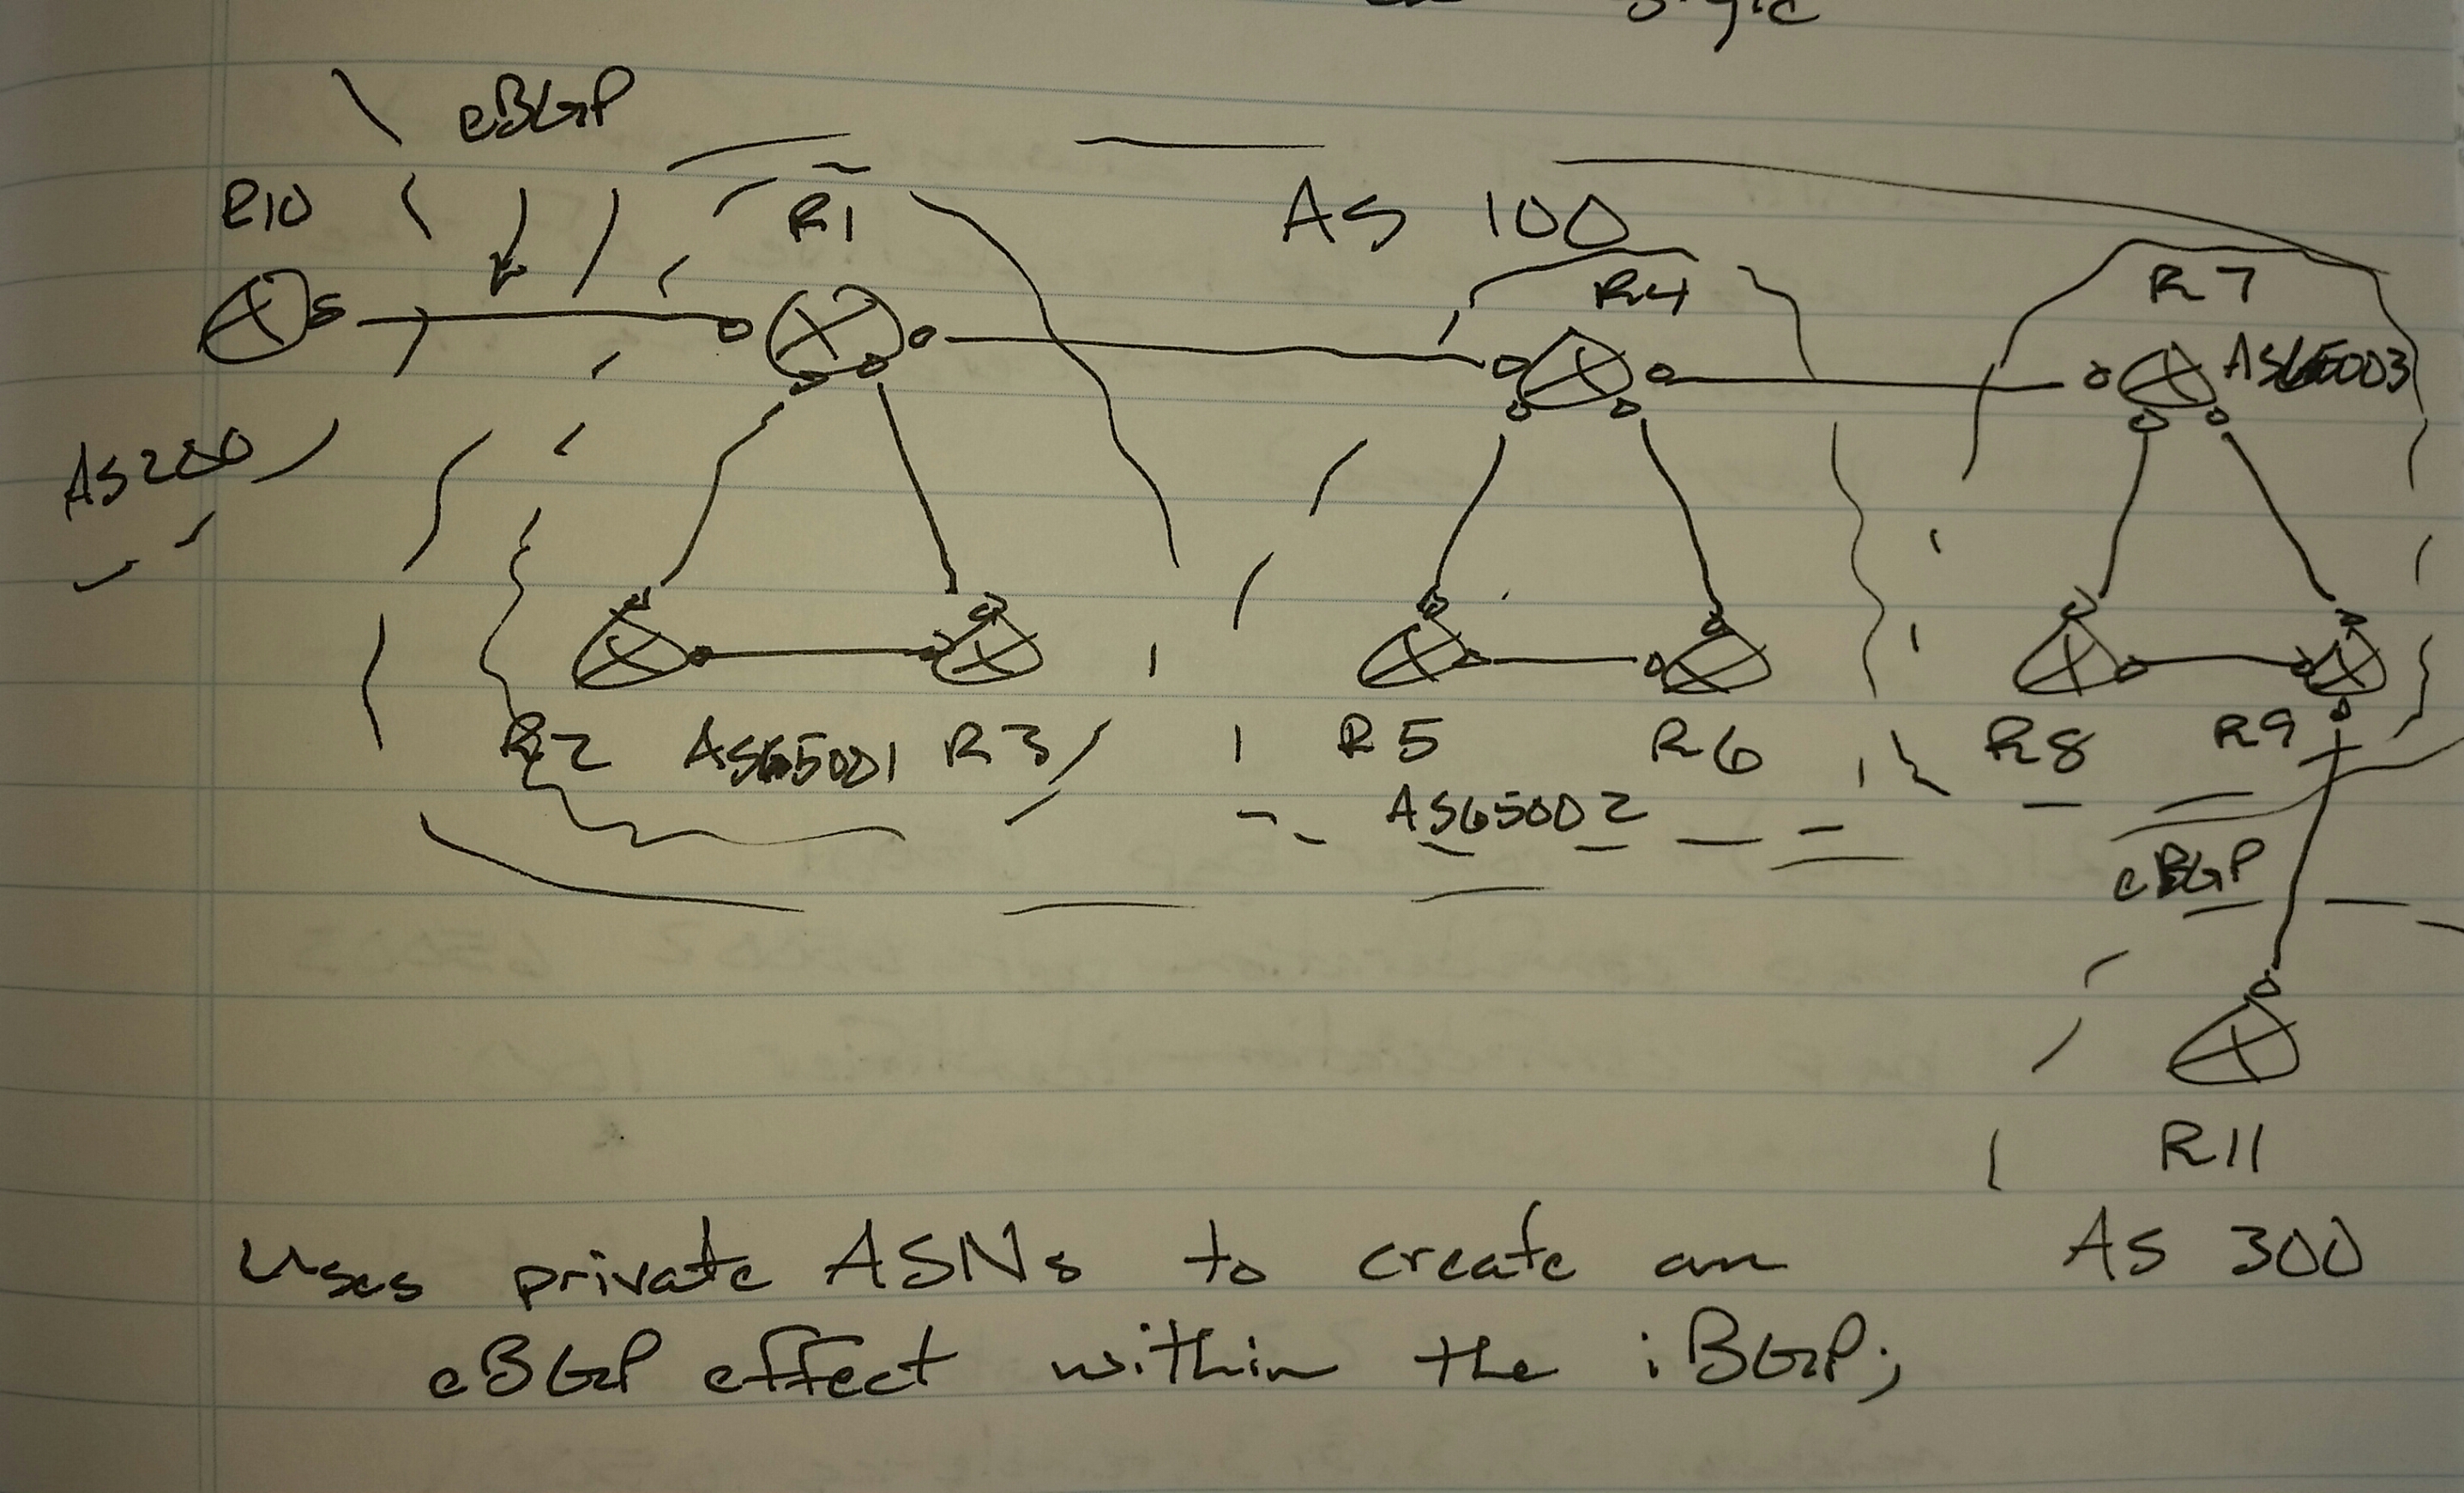 eBGP
R10
R1
AS 100
R4
R7
AS65003
AS200
R2 AS65001 R3
R5
R6
R8
R9
AS65002
eBGP
R11
AS 300
Uses private ASNs to create an
eBGP effect within the iBGP;